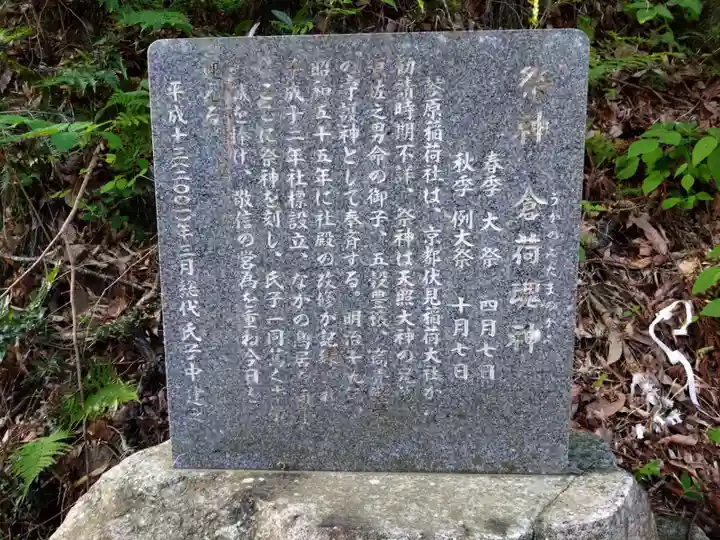 祭神 倉荷魂神
うかのみたまのかみ
春季 大祭 四月七日
秋季 例大祭 十月七日
原稲荷社は、京都伏見稲荷大社か
勧請時期不詳、祭神は天照大神の
佐之男命の御子、五穀豊穣、商
の守護神として奉斎する。明治十九
昭和五十五年に社殿の改修が記録
平成十二年社標設立、なかの鳥居
ここに祭神を刻し、氏子一同
を捧げ、敬信の営為を重ね今日
平成十三(二〇〇一)年二月総代氏子中建之